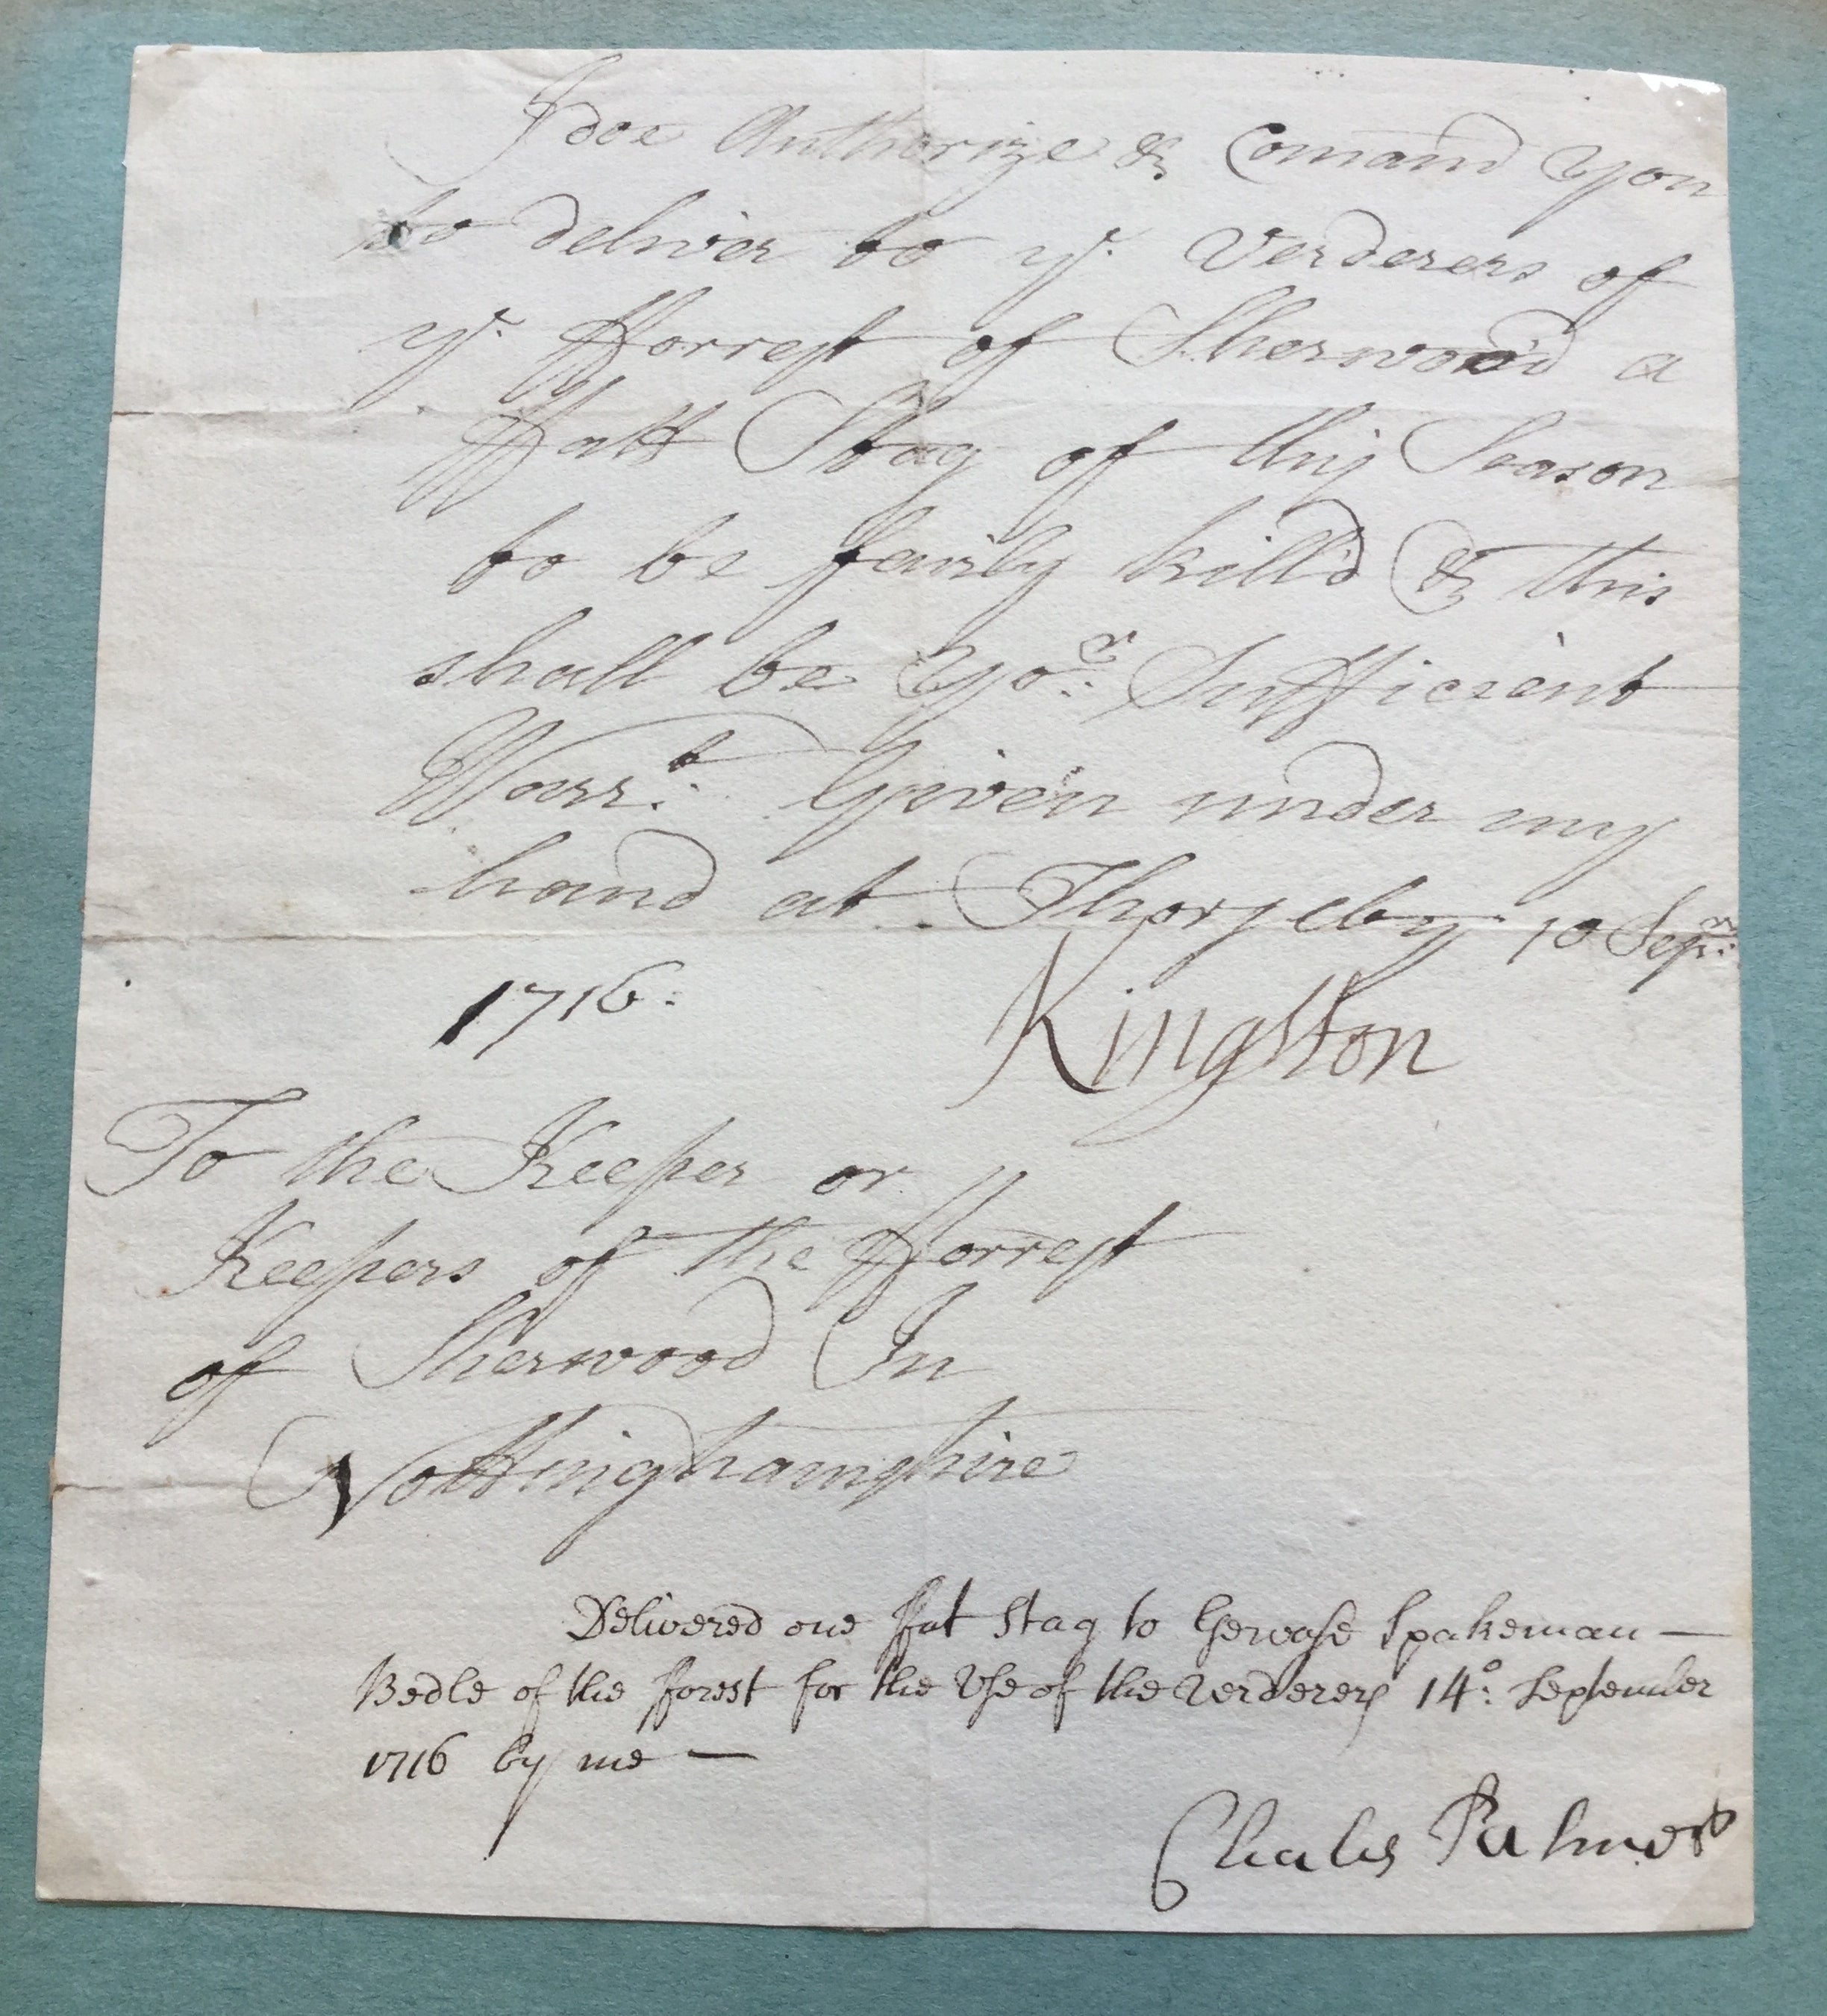 I doe Authorize & Comand you
to deliver to yᵉ. Verderers of
yᵉ. fforrest of Sherwood a
ffatt Stag of this Season
to be fairly kill'd & this
shall be yoʳ: Sufficient
Warrᵗ: Given under my
hand at Thorseby 10 Sepʳ:
1716:
Kingston
To the Keeper or
Keepers of the fforrest
of Sherwood In
Nottinghamshire
Delivered one ffat Stag to Gervase Spakeman —
Bedle of the fforest for the Use of the Verderers 14°: September
1716 by me —
Charles Palmer